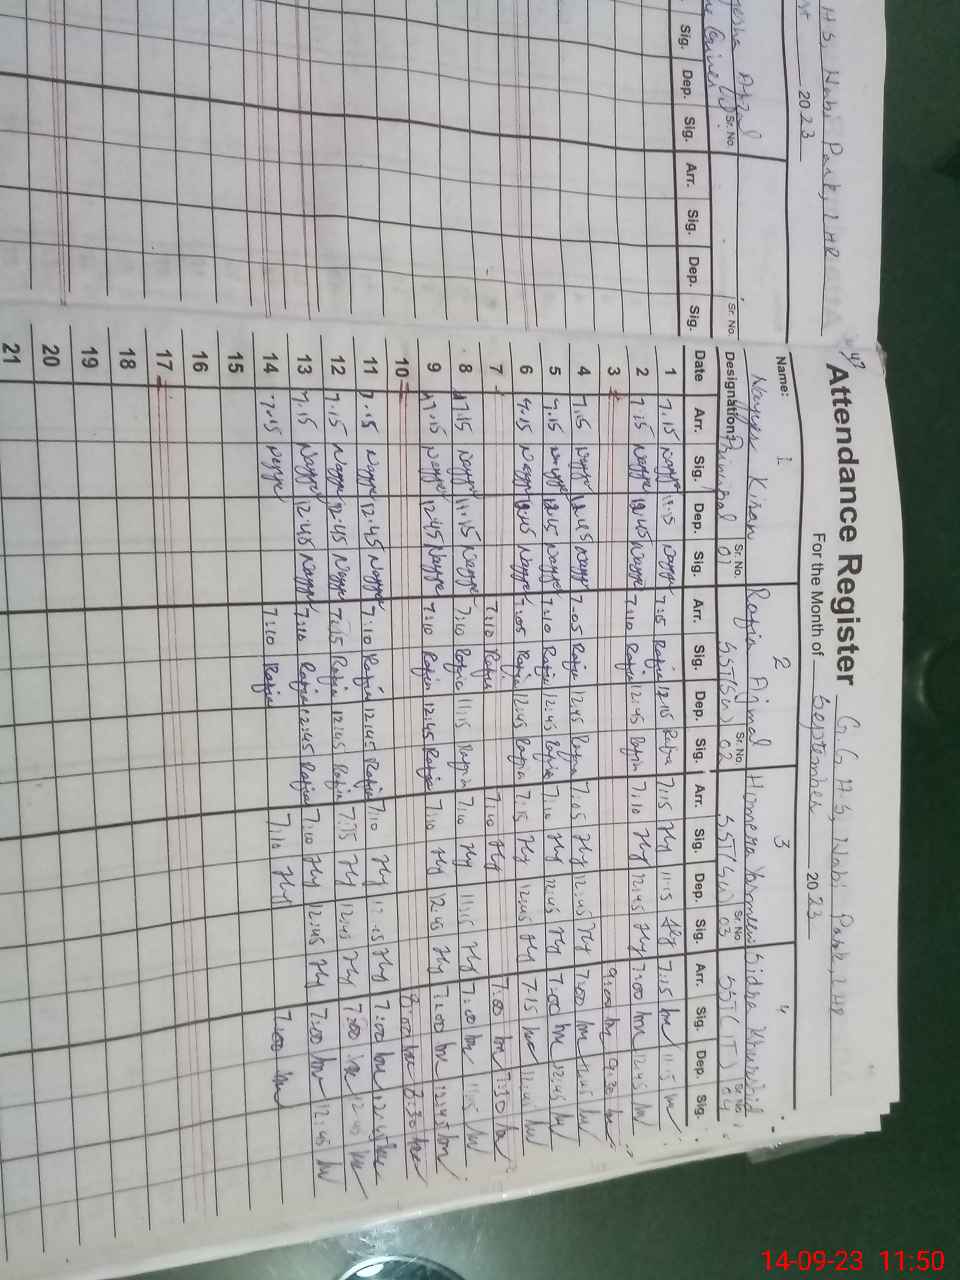 H S, Nabi Park, LHR
2023
Afzal
Sr. No.
Sr. No.
Sig. Dep. Sig. Arr. Sig. Dep. Sig.
Attendance Register G. G. H S, Nabi Park, LHR
For the Month of September 2023
Name: 1 2 3 4
Nayyer Kiran Razia Ajmal Homera Yasmeen Sidra Khurshid
Designation: Principal Sr. No. 01 SST(Sc) Sr. No. 02 SST(Sc) Sr. No 03 SST(IT) Sr. No. 04
Date Arr. Sig. Dep. Sig. Arr. Sig. Dep. Sig. Arr. Sig. Dep. Sig. Arr. Sig. Dep. Sig.
1 7.15 Nayyer 11.15 Nayyer 7:15 Razia 12:15 Razia 7:15 Hy 11:15 Hy 7:15 11:15
2 7.15 Nayyer 12.45 Nayyer 7:10 Razia 12:45 Razia 7:10 Hy 12:45 Hy 7:00 12:45
3 9:00 9:30
4 7.15 Nayyer 12.45 Nayyer 7:05 Razia 12:45 Razia 7:05 Hy 12:45 Hy 7:00 12:45
5 7.15 Nayyer 12.45 Nayyer 7:10 Razia 12:45 Razia 7:10 Hy 12:45 Hy 7:00 12:45
6 7.15 Nayyer 12.45 Nayyer 7:05 Razia 12:45 Razia 7:15 Hy 12:45 Hy 7:15 12:45
7 7:10 Razia 7:10 Hy 7:00 7:30
8 7.15 Nayyer 11.15 Nayyer 7:10 Razia 11:15 Razia 7:10 Hy 11:15 Hy 7:00 11:15
9 7.15 Nayyer 12.45 Nayyer 7:10 Razia 12:45 Razia 7:10 Hy 12:45 Hy 7:00 12:45
10 8:00 8:30
11 7.15 Nayyer 12.45 Nayyer 7:10 Razia 12:45 Razia 7:10 Hy 12:45 Hy 7:00 12:45
12 7.15 Nayyer 12.45 Nayyer 7:15 Razia 12:45 Razia 7:15 Hy 12:45 Hy 7:00 12:45
13 7.15 Nayyer 12.45 Nayyer 7:10 Razia 12:45 Razia 7:10 Hy 12:45 Hy 7:00 12:45
14 7.15 Nayyer 7:10 Razia 7:10 Hy 7:00
15
16
17
18
19
20
21
14-09-23 11:50